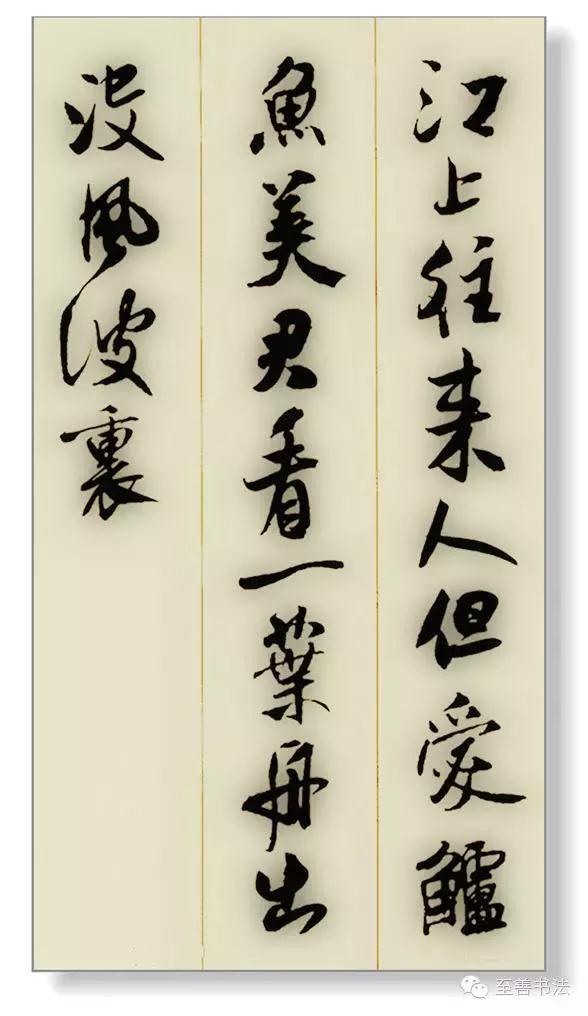 江上往来人但愛鱸
魚美君看一葉舟出
没風波裏
至善书法